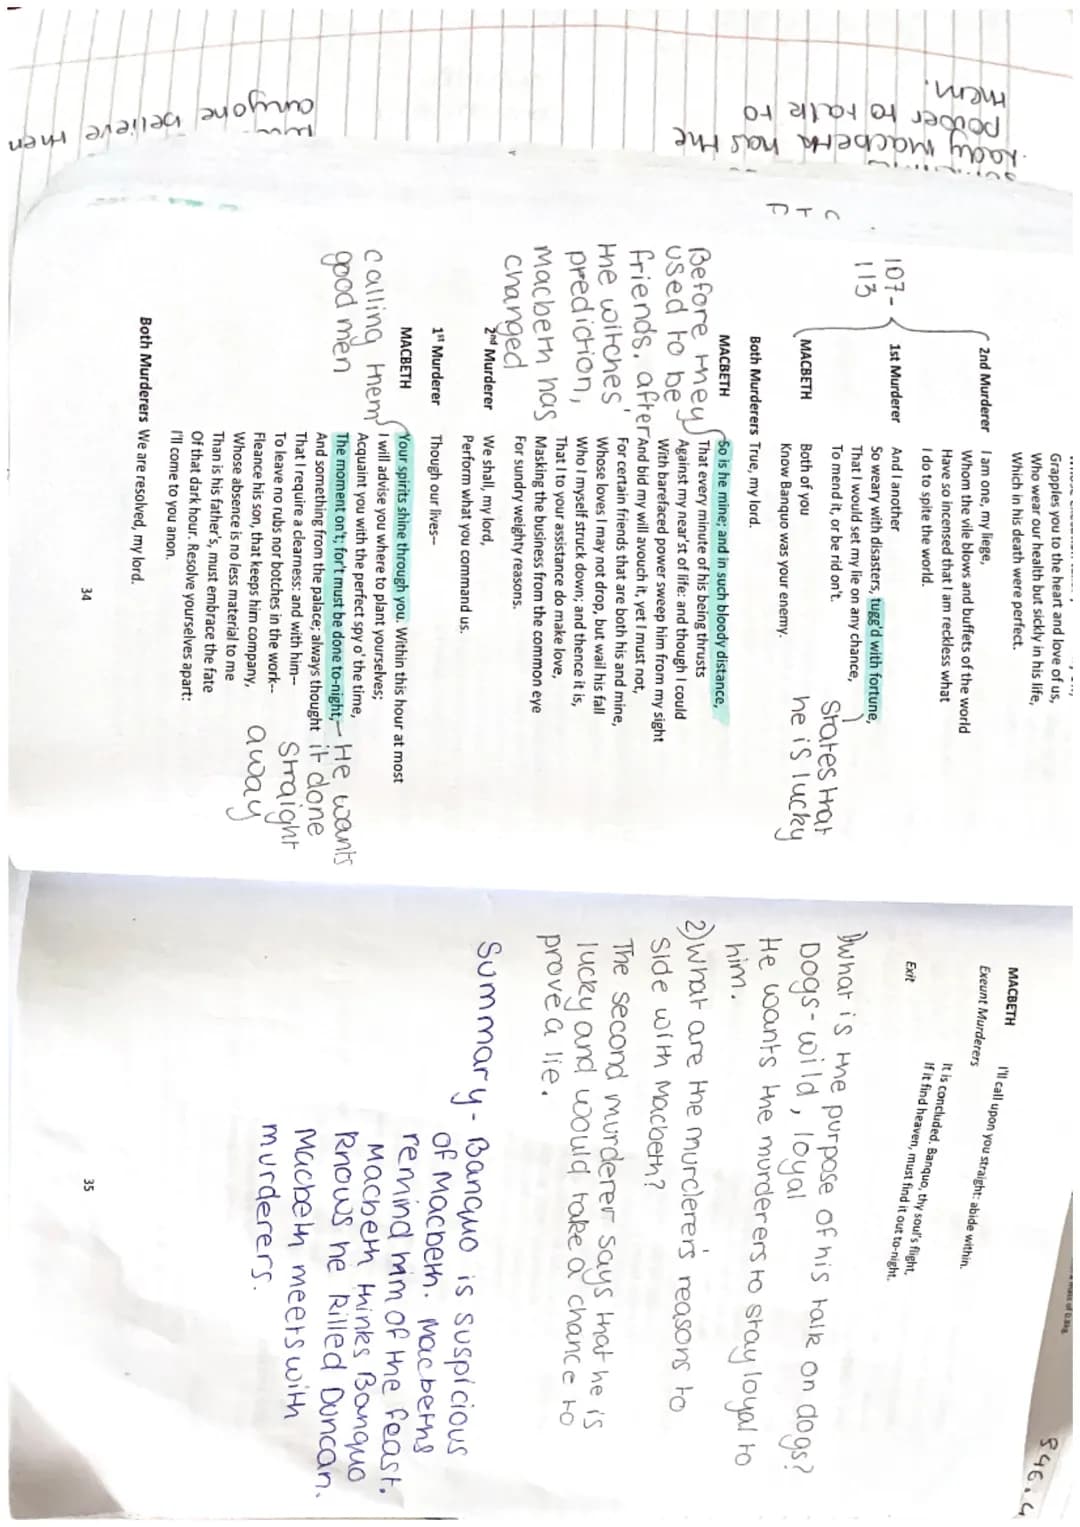 Grapples you to the heart and love of us,
Who wear our health but sickly in his life,
Which in his death were perfect.
2nd Murderer I am one, my liege,
Whom the vile blows and buffets of the world
Have so incensed that I am reckless what
I do to spite the world.
107-
113
1st Murderer And I another
So weary with disasters, tugg'd with fortune,
That I would set my lie on any chance,
To mend it, or be rid on't.
States that
he is lucky
MACBETH Both of you
Know Banquo was your enemy.
Both Murderers True, my lord.
MACBETH So is he mine; and in such bloody distance,
That every minute of his being thrusts
Against my near'st of life: and though I could
With barefaced power sweep him from my sight
And bid my will avouch it, yet I must not,
For certain friends that are both his and mine,
Whose loves I may not drop, but wail his fall
Who I myself struck down; and thence it is,
That I to your assistance do make love,
Masking the business from the common eye
For sundry weighty reasons.
Before they
used to be
friends. after
the witches'
prediction,
Macbeth has
changed
2nd Murderer We shall, my lord,
Perform what you command us.
1st Murderer Though our lives--
MACBETH Your spirits shine through you. Within this hour at most
I will advise you where to plant yourselves;
Acquaint you with the perfect spy o' the time,
The moment on't; for't must be done to-night,
And something from the palace; always thought
That I require a clearness: and with him--
To leave no rubs nor botches in the work--
Fleance his son, that keeps him company,
Whose absence is no less material to me
Than is his father's, must embrace the fate
Of that dark hour. Resolve yourselves apart:
I'll come to you anon.
calling them
good men
He wants
it done
straight
away
Both Murderers We are resolved, my lord.
34
MACBETH I'll call upon you straight: abide within.
Exeunt Murderers
It is concluded. Banquo, thy soul's flight,
If it find heaven, must find it out to-night.
Exit
1) What is the purpose of his talk on dogs?
Dogs - wild, loyal
He wants the murderers to stay loyal to
him.
2) What are the murderer's reasons to
side with Macbeth?
The second murderer says that he is
lucky and would take a chance to
prove a lie.
Summary - Banquo is suspicious
of Macbeth. Macbeths
remind him of the feast.
Macbeth thinks Banquo
knows he killed Duncan.
Macbeth meets with
murderers.
35
Lady Macbeth has the
power to talk to
them.
anyone believe them